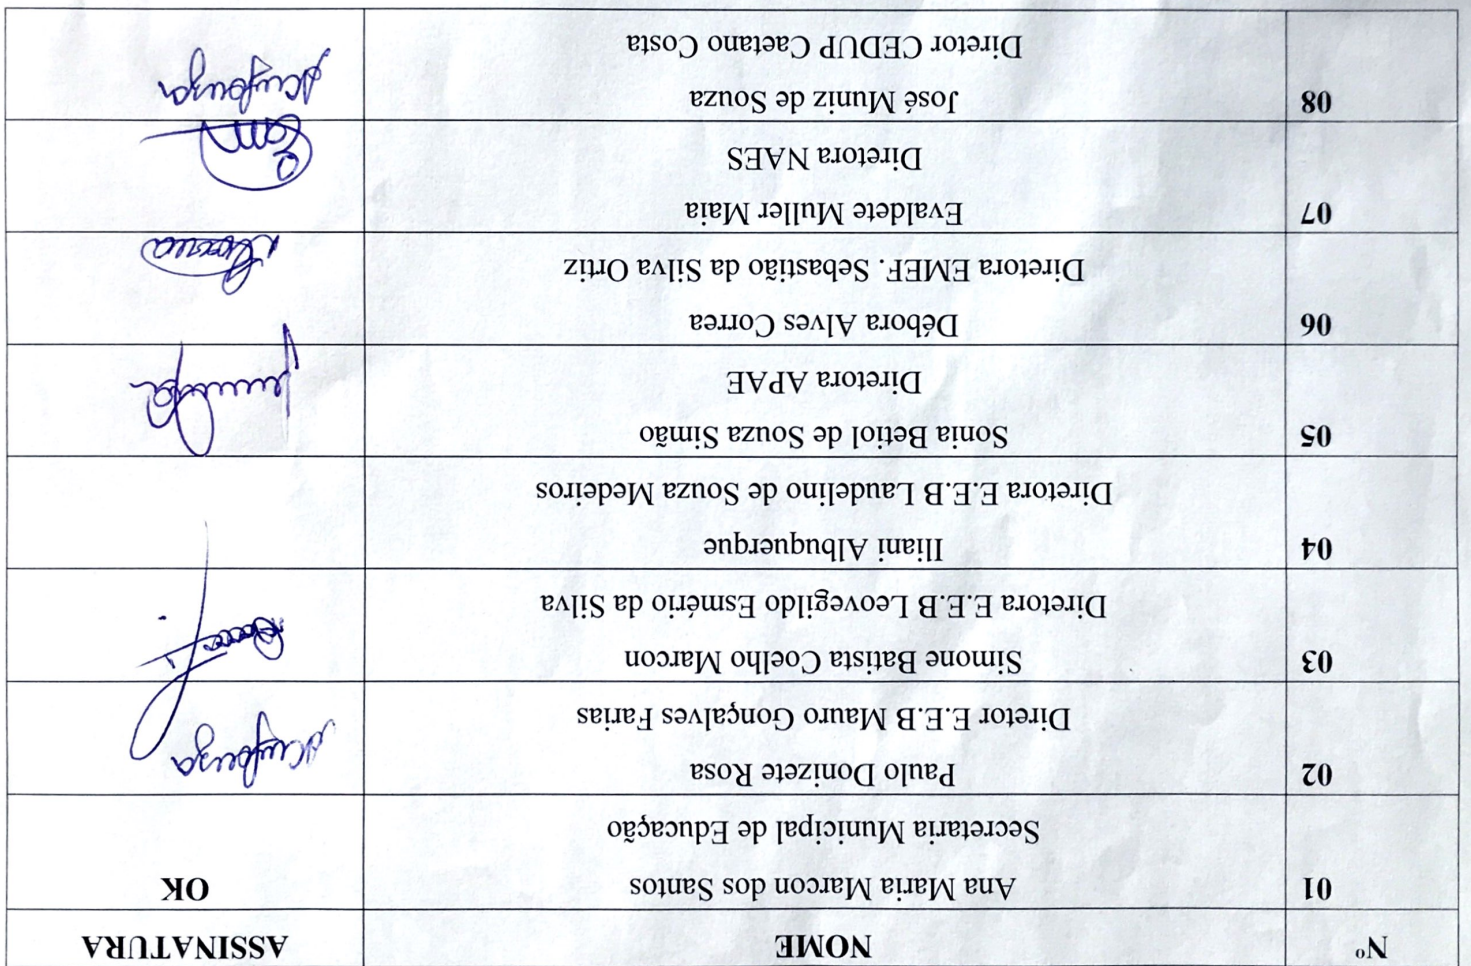 Nº NOME ASSINATURA
01 Ana Maria Marcon dos Santos OK
Secretaria Municipal de Educação
02 Paulo Donizete Rosa
Diretor E.E.B Mauro Gonçalves Farias
03 Simone Batista Coelho Marcon
Diretora E.E.B Leovegildo Esmério da Silva
04 Iliani Albuquerque
Diretora E.E.B Laudelino de Souza Medeiros
05 Sonia Betiol de Souza Simão
Diretora APAE
06 Débora Alves Correa
Diretora EMEF. Sebastião da Silva Ortiz
07 Evaldete Muller Maia
Diretora NAES
08 José Muniz de Souza
Diretor CEDUP Caetano Costa